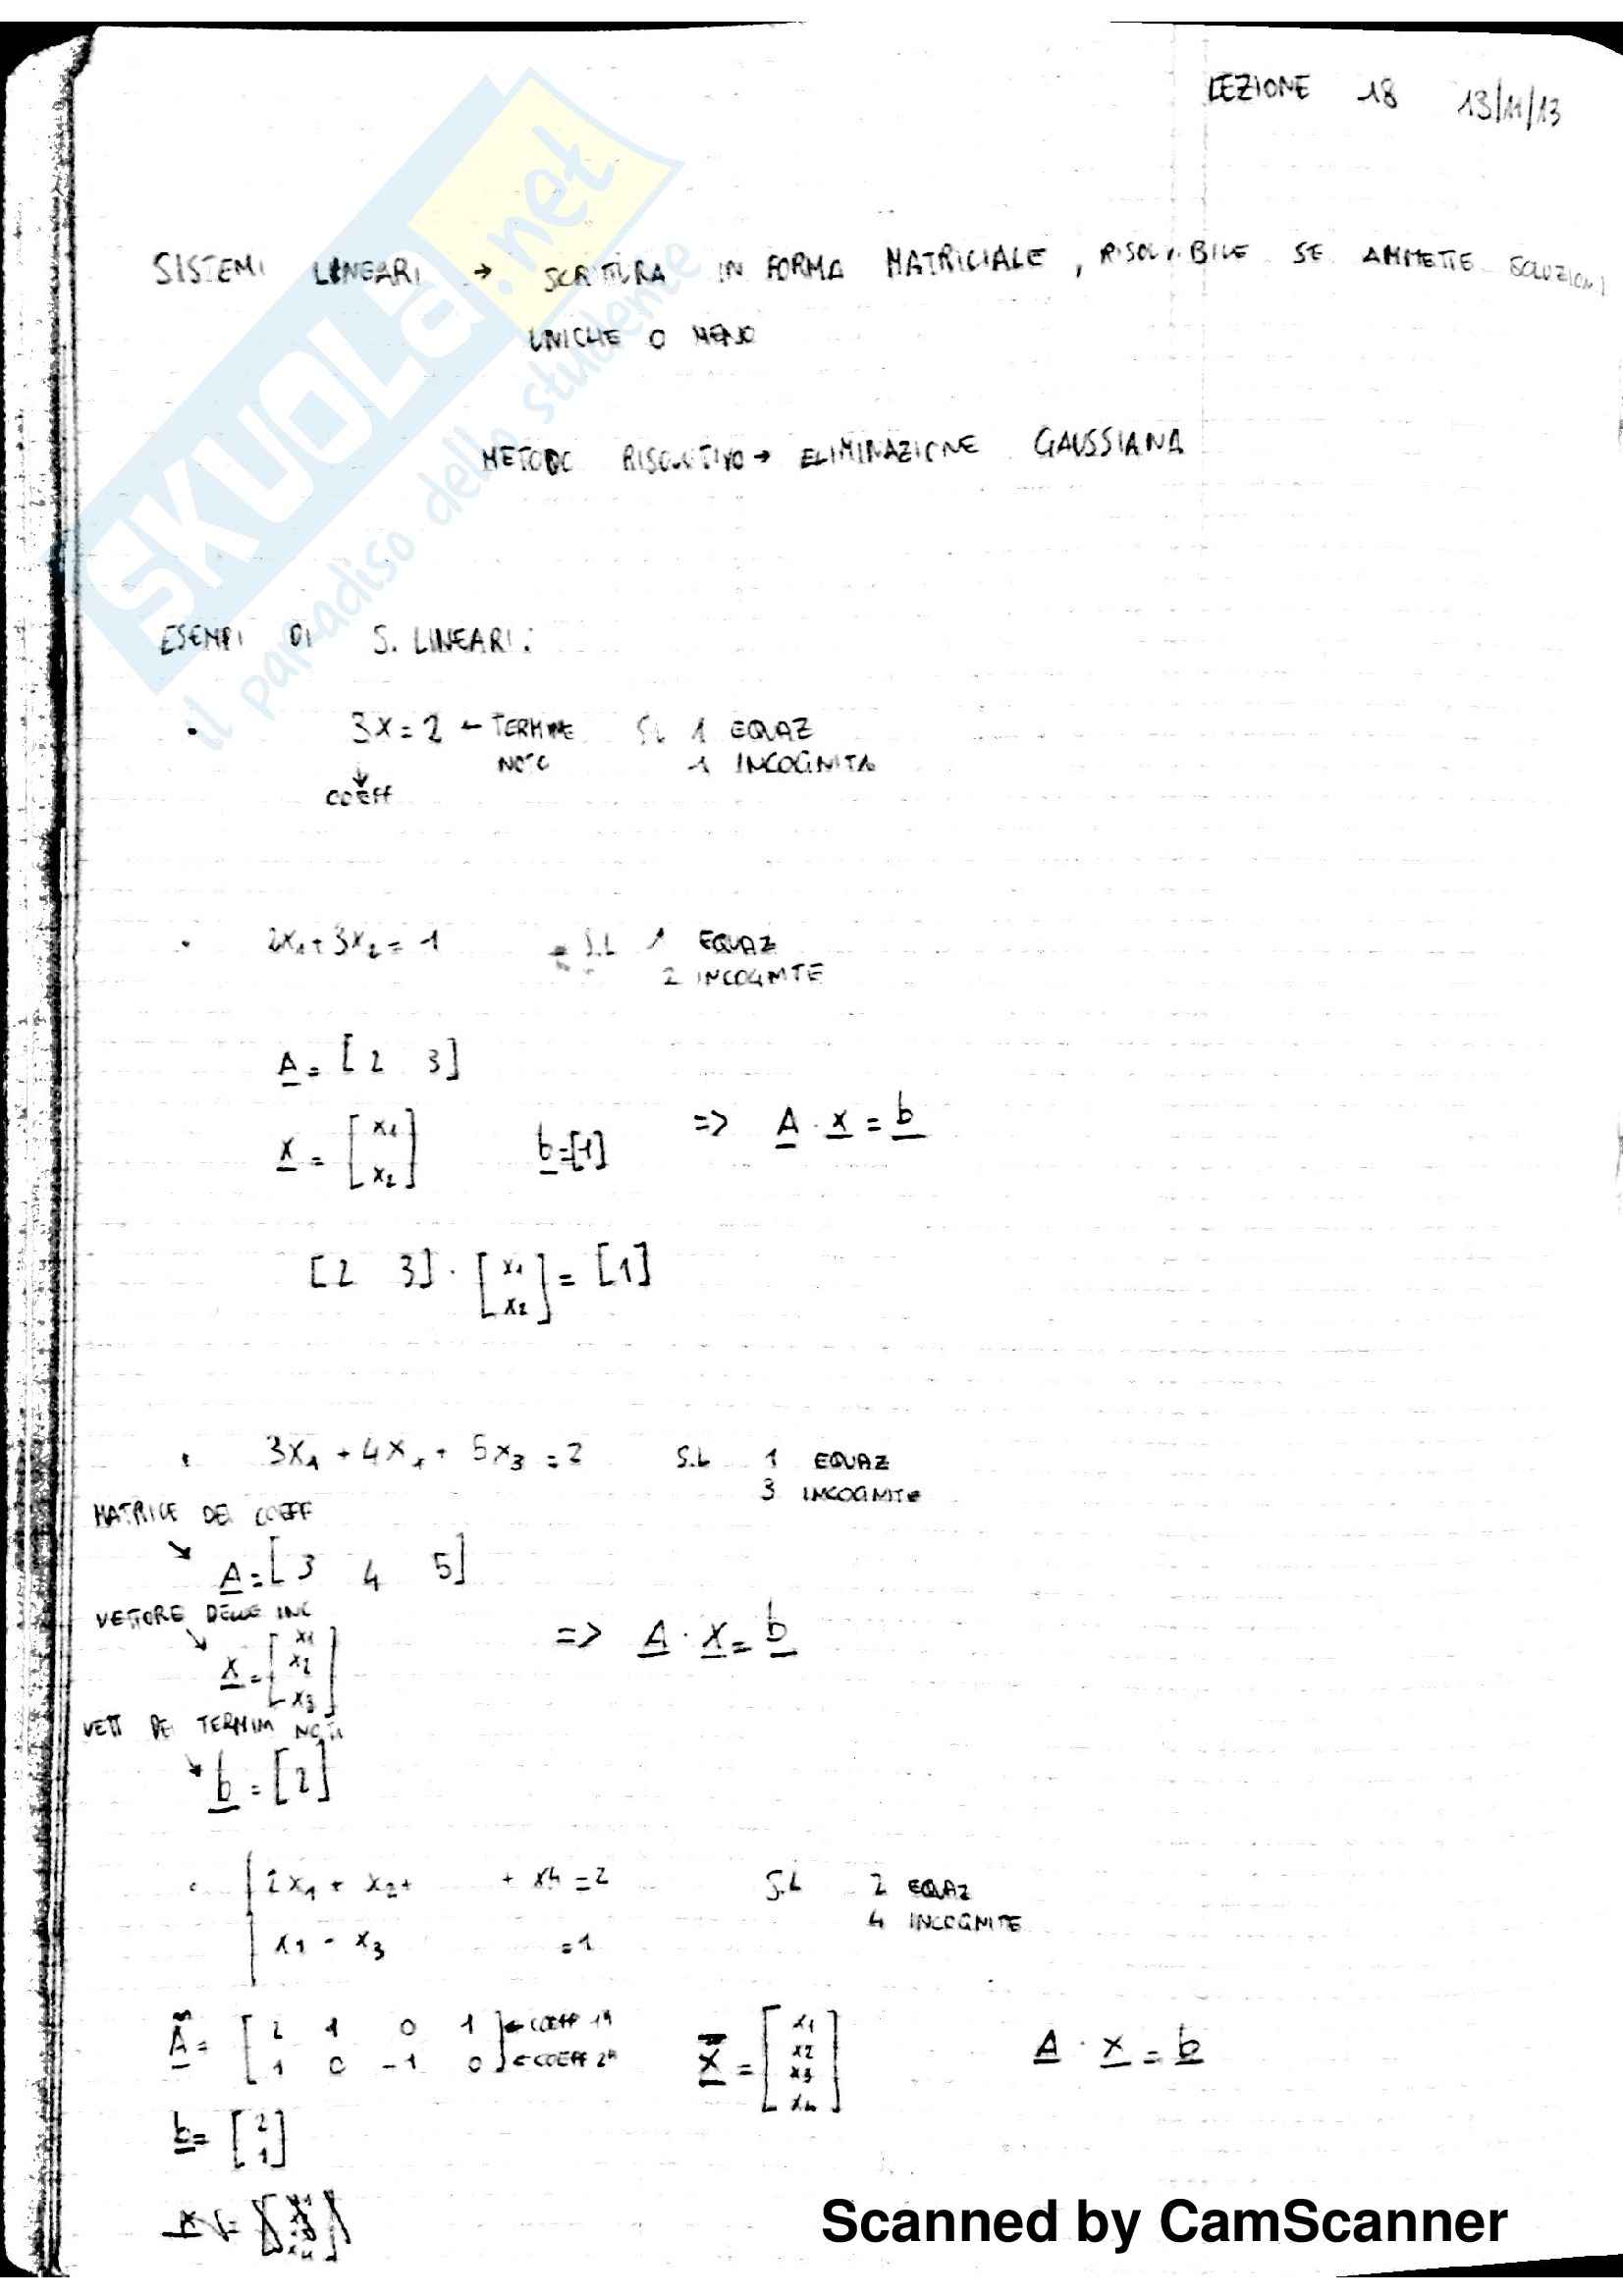 LEZIONE 18 13/11/13
SISTEMI LINEARI → SCRITTURA IN FORMA MATRICIALE, RISOLVIBILE SE AMMETTE SOLUZIONI
UNICHE O MENO
METODO RISOLUTIVO → ELIMINAZIONE GAUSSIANA
SKUOLA.net
il paradiso dello studente
ESEMPI DI S. LINEARI:
• 3x = 2 ← TERMINE S.L 1 EQUAZ
NOTO 1 INCOGNITA
↓
coeff
• 2x₁ + 3x₂ = 1 S.L 1 EQUAZ
2 INCOGNITE
A = [2 3]
x = [x₁ x₂] b = [1] => A · x = b
[2 3] · [x₁ x₂] = [1]
• 3x₁ + 4x₂ + 5x₃ = 2 S.L 1 EQUAZ
3 INCOGNITE
MATRICE DEI COEFF
↘ A = [3 4 5]
VETTORE DELLE INC
↘ x = [x₁ x₂ x₃] => A · x = b
VETT DEI TERMINI NOTI
↘ b = [2]
• 2x₁ + x₂ + + x4 = 2 S.L 2 EQUAZ
x₁ - x₃ = 1 4 INCOGNITE
A = [2 1 0 1] ← COEFF 1ª
[1 0 -1 0] ← COEFF 2ª
x = [x1 x2 x3 x4] A · x = b
b = [2 1]
Scanned by CamScanner